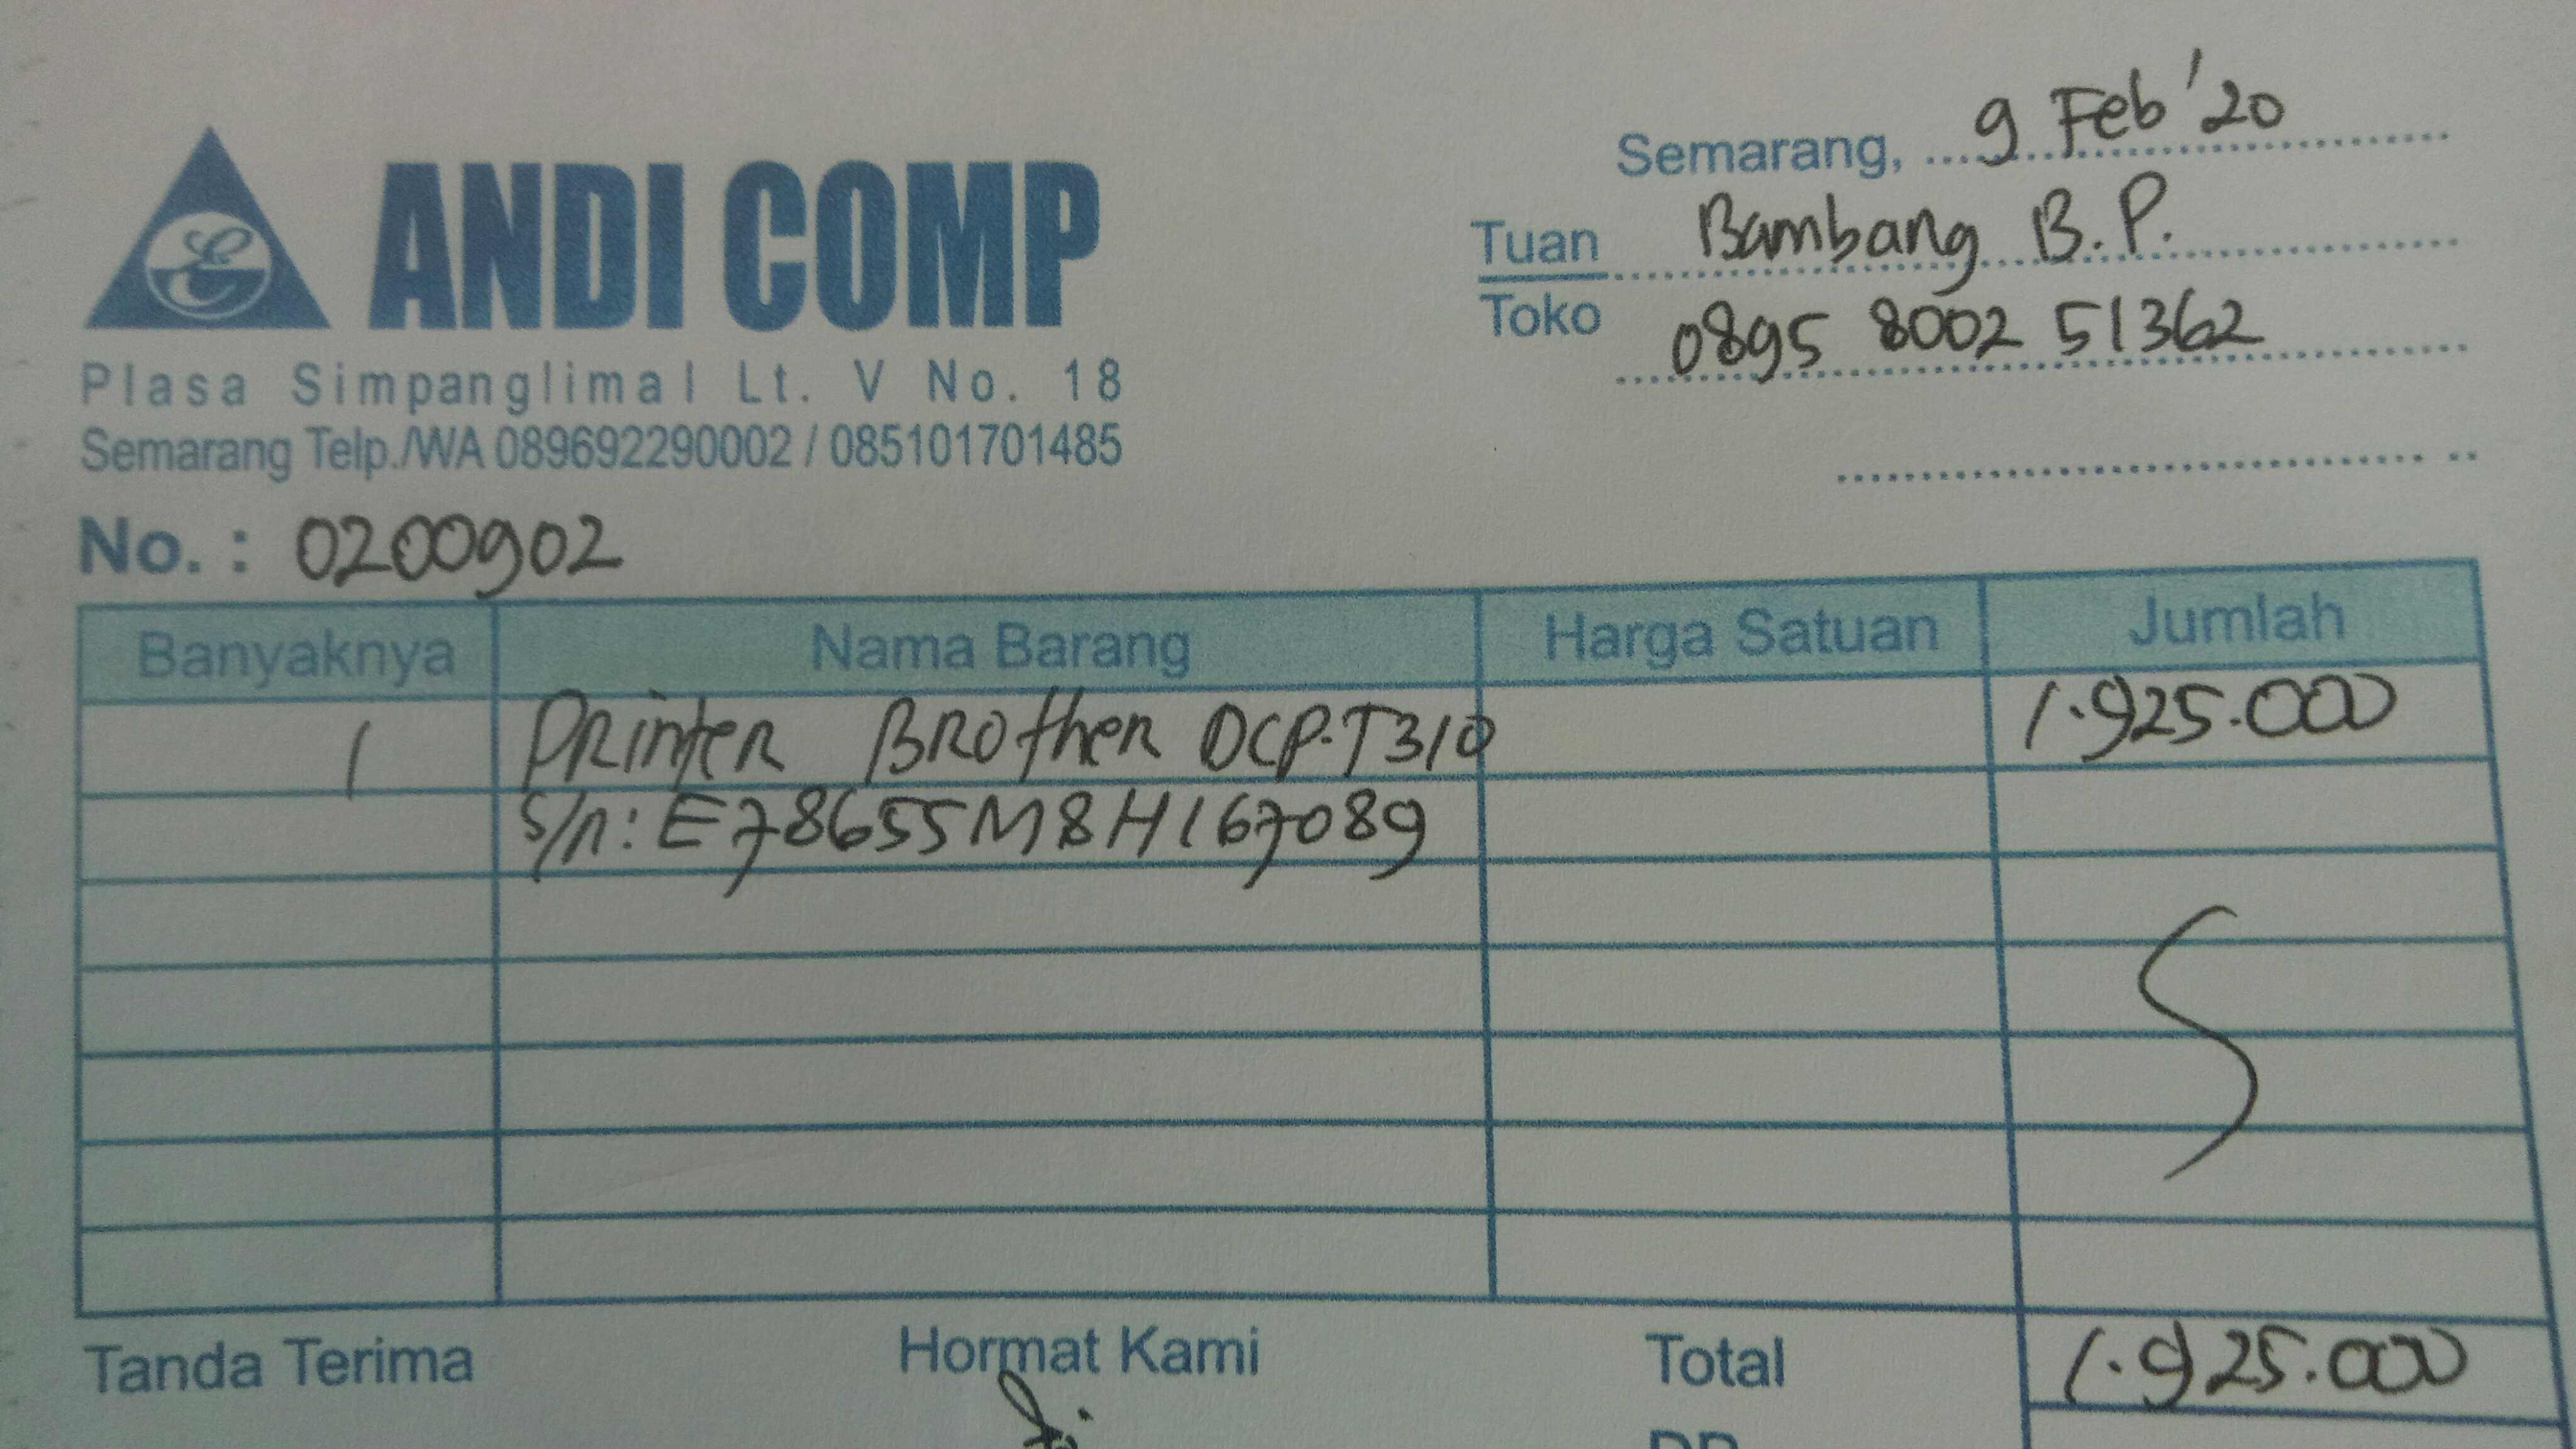 ANDI COMP
Plasa Simpanglimal Lt. V No. 18
Semarang Telp./WA 089692290002 / 085101701485
Semarang, 9 Feb '20
Tuan Bambang B.P.
Toko 0895 8002 51362
No. : 0200902
Banyaknya Nama Barang Harga Satuan Jumlah
1 Printer Brother DCP-T310 1.925.000
S/n: E78655M8H167089
Tanda Terima Hormat Kami Total 1.925.000